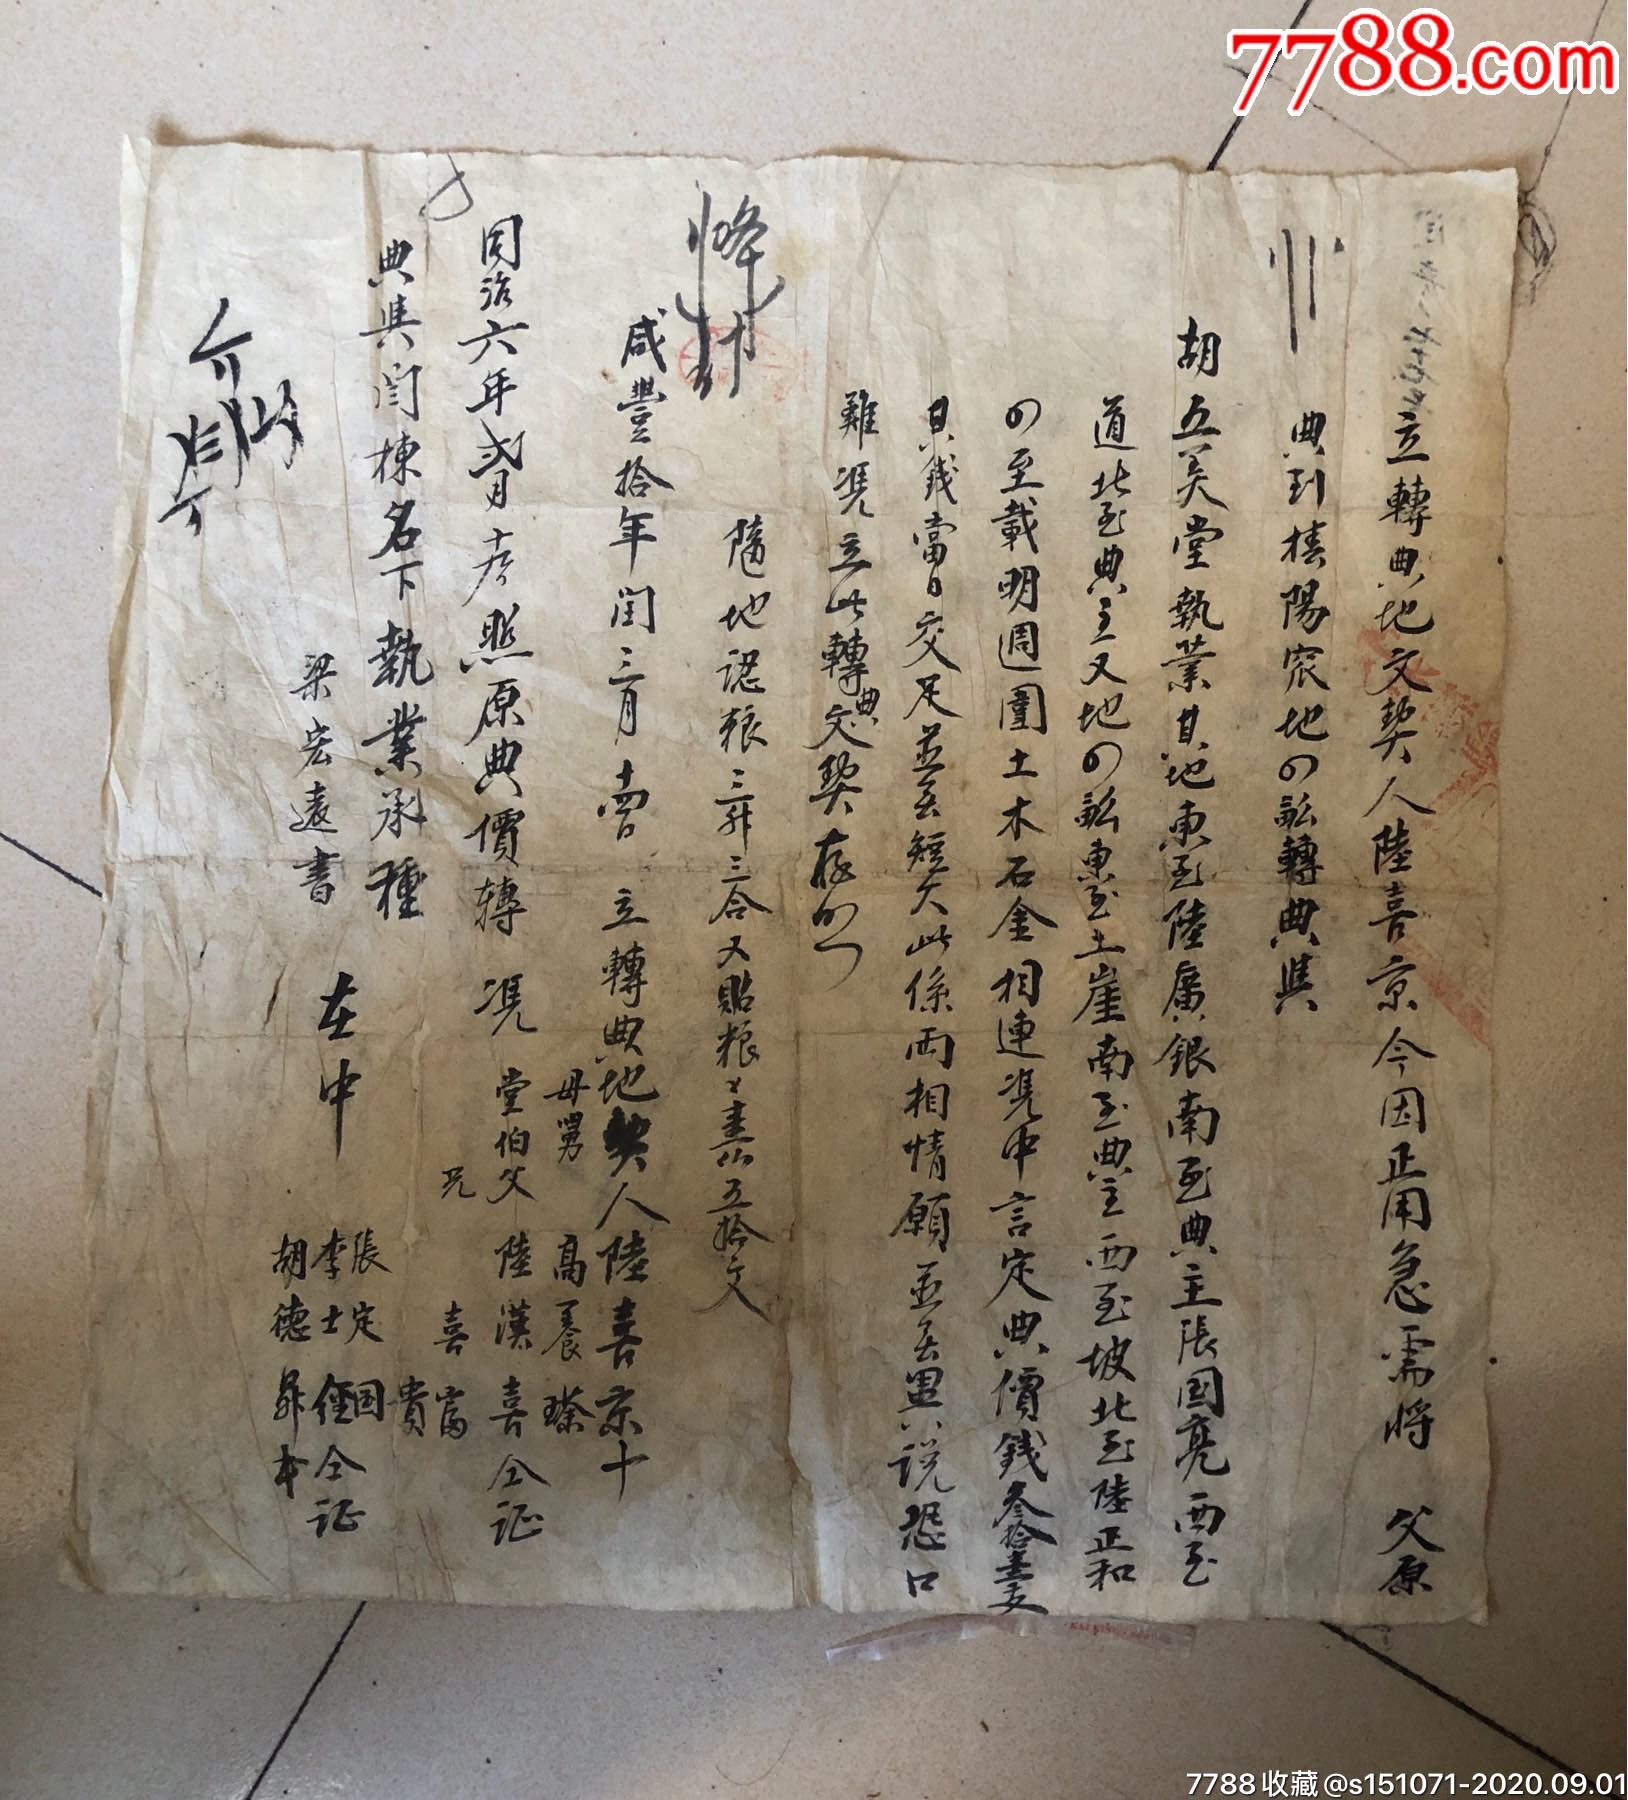 7788.com
立轉典地文契人陸喜京今因正用急需將 父原
典到 陽 地 轉典與
胡五美堂執業其地東至陸廣銀南至典主張國亮西至
道北至典主又地 東至土崖南至典主西至坡北至陸正和
四至載明週圍土木石金相連憑中言定典價錢叁拾壹
其錢當日交足並無短欠此係兩相情願並無異說恐口
難憑立此轉典文契存照
隨地認粮三升三合又貼粮 五拾文
咸豐拾年閏三月 立轉典地契人陸喜京十
母舅 高養 
憑 堂伯父 陸漢喜仝証
兄 喜富
貴
同治六年貳月 照原典價轉
典與閆棟名下執業承種
在中
張定国
李士 仝証
胡德昇
梁宏遠書
7788收藏@s151071-2020.09.01